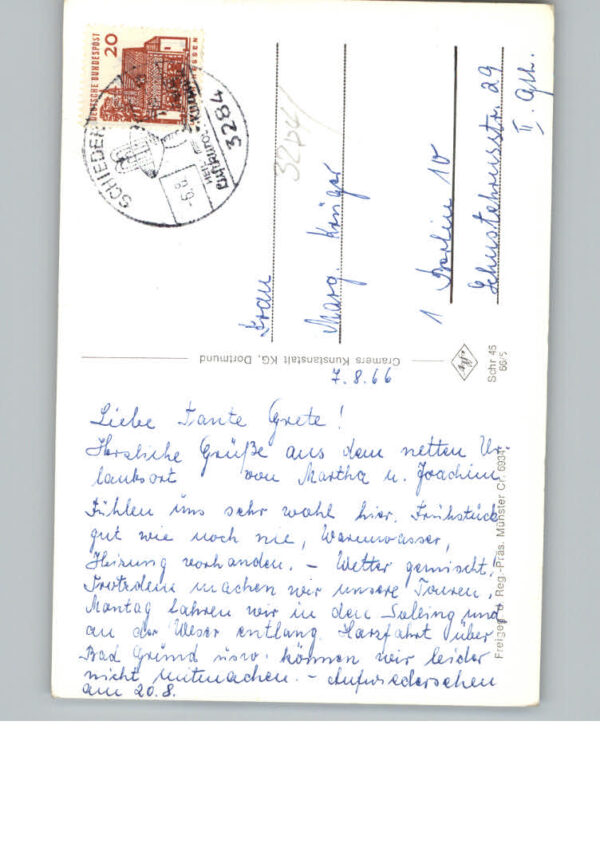 DEUTSCHE BUNDESPOST
20
SCHIEDER
3284
Frau
Marg. Krüger
1 Berlin 10
29
II.
Cramers Kunstanstalt KG, Dortmund
Schr 45
66/5
Freigeg. d. Reg.-Präs. Münster Cr. 6934
7.8.66
Liebe Tante Grete!
Herzliche Grüße aus dem netten Ur-
laubsort von Martha u. Joachim
Fühlen uns sehr wohl hier. Frühstück
gut wie noch nie, Warmwasser,
Heizung vorhanden. - Wetter gemischt,
Trotzdem machen wir unsere Touren.
Montag fahren wir in den Solling und
an der Weser entlang. Harzfahrt über
Bad Grund usw. können wir leider
nicht mitmachen. - Aufwiedersehen
am 20.8.